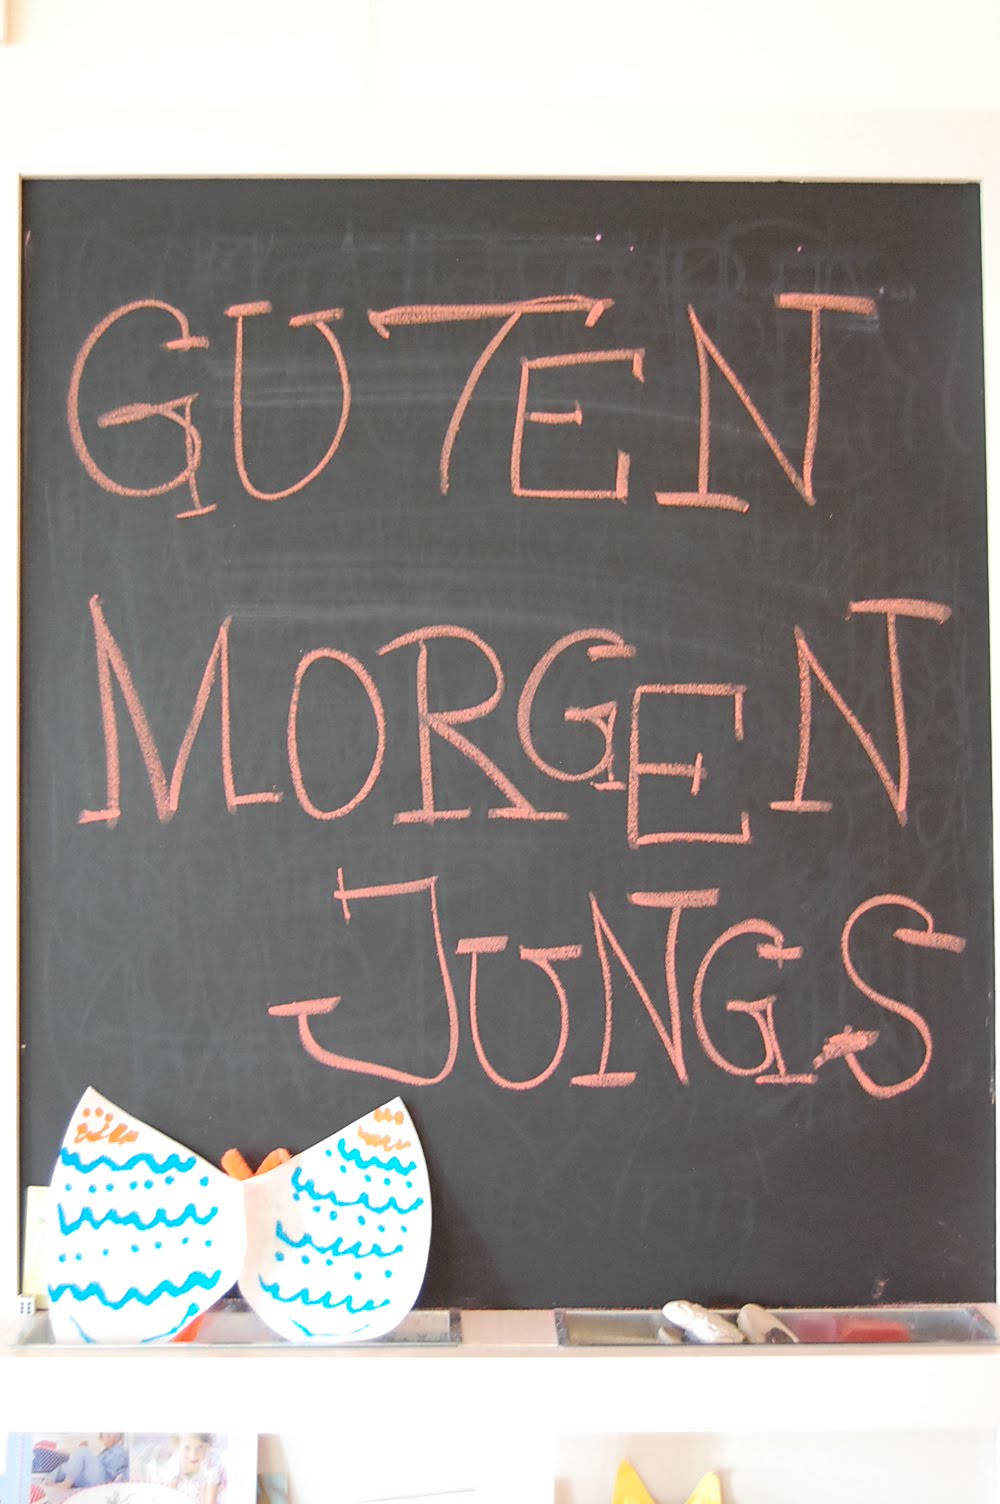 GUTEN
MORGEN
JUNGS